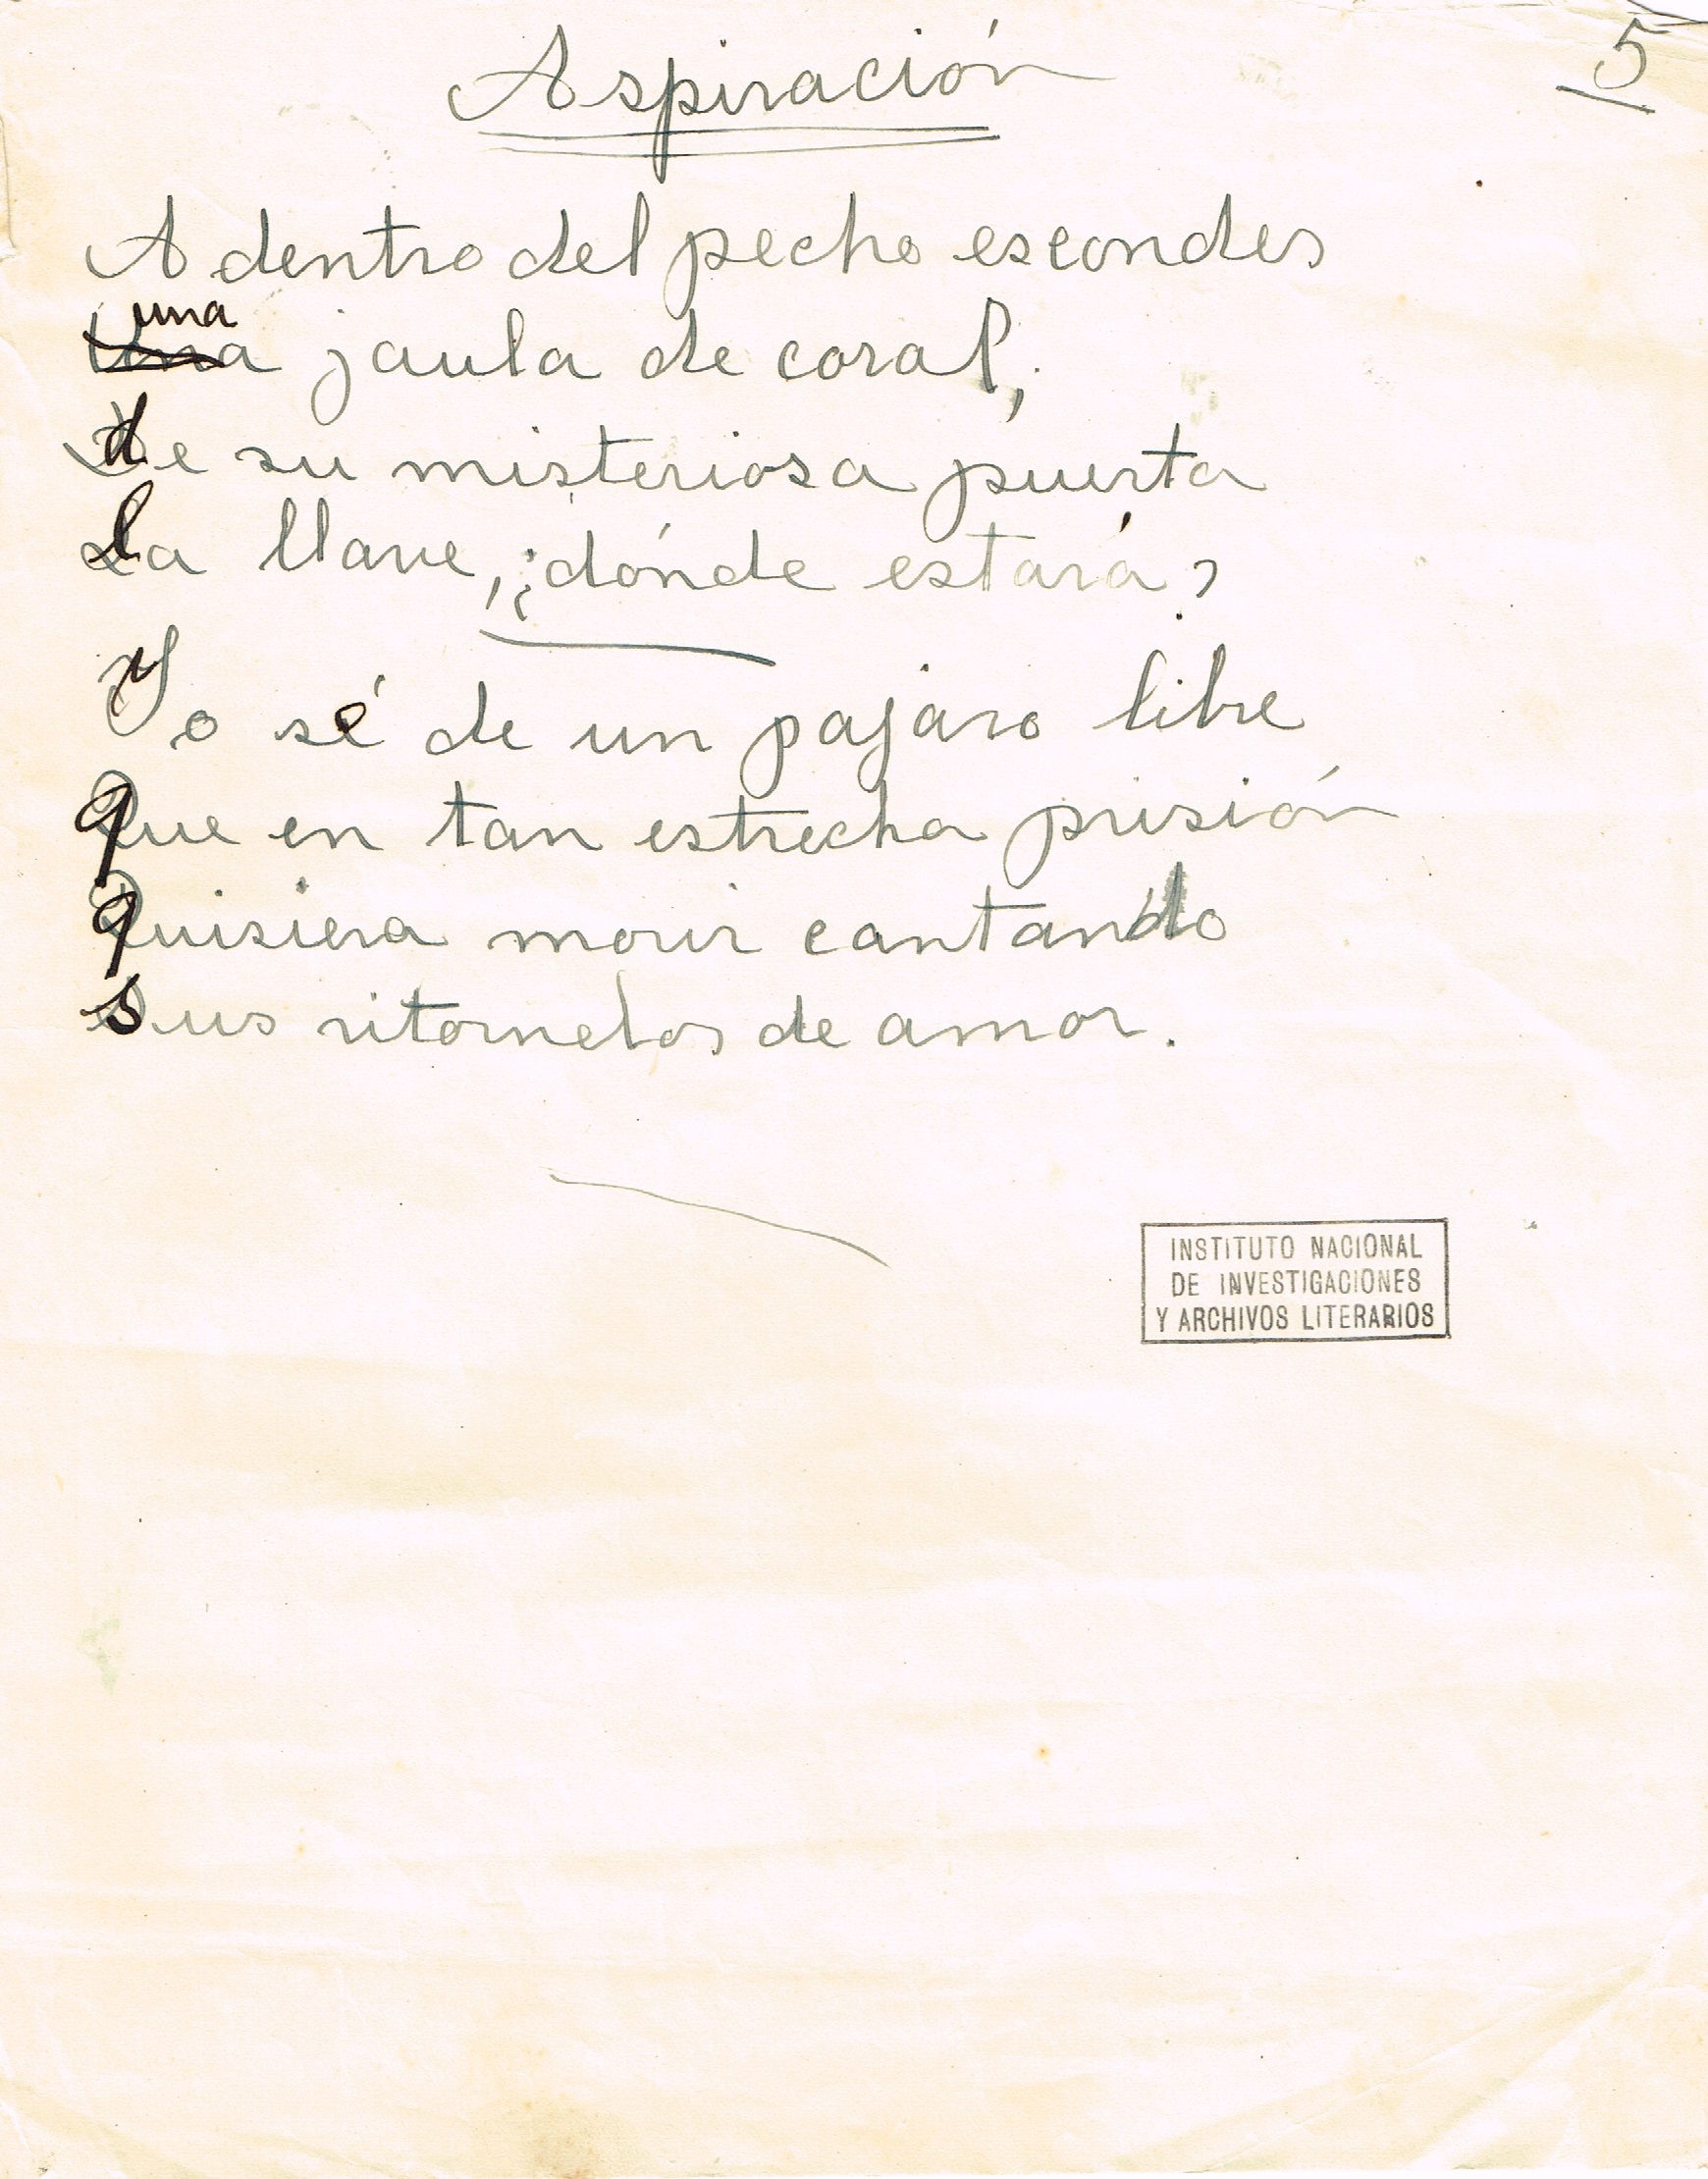 Aspiración
5
Adentro del pecho escondes
una
Una jaula de coral,
de su misteriosa puerta
la llave, ¿dónde estará?
yo sé de un pajaro libre
que en tan estrecha prisión
quisiera morir cantando
sus ritornelos de amor.
INSTITUTO NACIONAL
DE INVESTIGACIONES
Y ARCHIVOS LITERARIOS